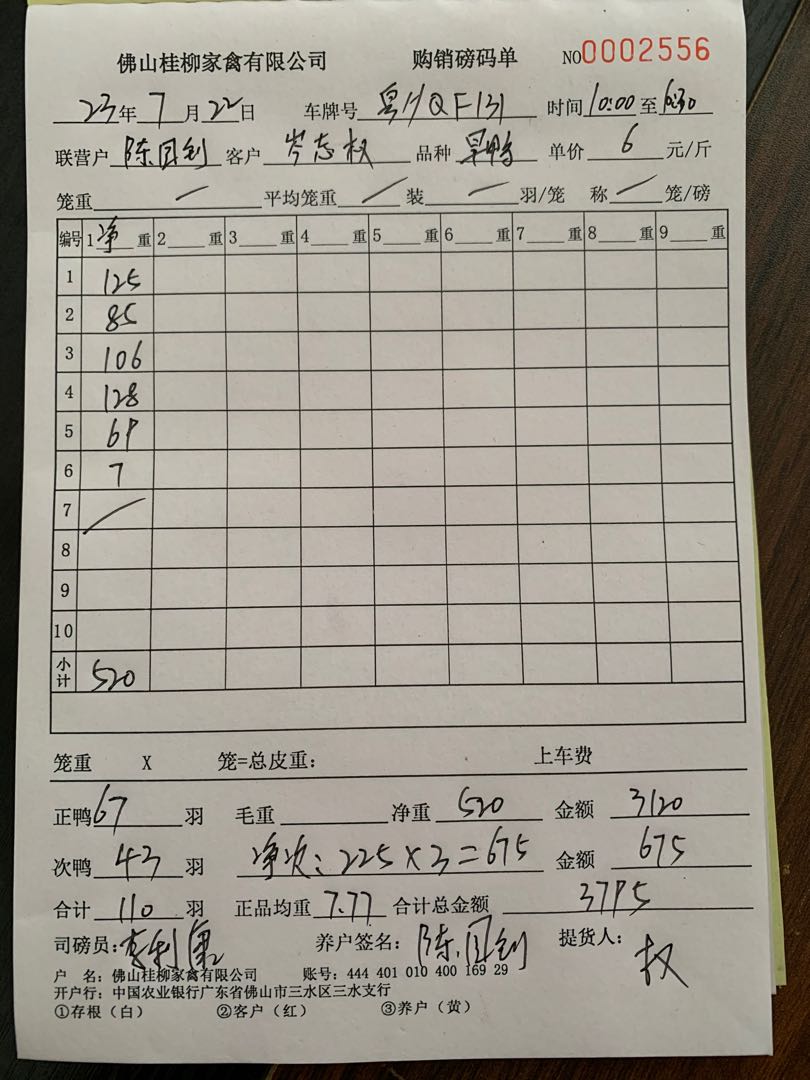 佛山桂柳家禽有限公司 购销磅码单 NO0002556
23年7月22日 车牌号 粤HQF131 时间10:00至10:30
联营户 陈国钊 客户 岑志权 品种 旱鸭 单价 6 元/斤
笼重 — 平均笼重 — 装 — 羽/笼 称 — 笼/磅
编号 1净重 2 重 3 重 4 重 5 重 6 重 7 重 8 重 9 重
1 125
2 85
3 106
4 128
5 69
6 7
7 /
8
9
10
小计 520
笼重 X 笼=总皮重: 上车费
正鸭67羽 毛重 净重 520 金额 3120
次鸭 43 羽 净次:225×3=675 金额 675
合计 110 羽 正品均重 7.77 合计总金额 3795
司磅员: 养户签名:陈国钊 提货人:权
户 名:佛山桂柳家禽有限公司 账号:444 401 010 400 169 29
开户行:中国农业银行广东省佛山市三水区三水支行
①存根(白) ②客户(红) ③养户(黄)